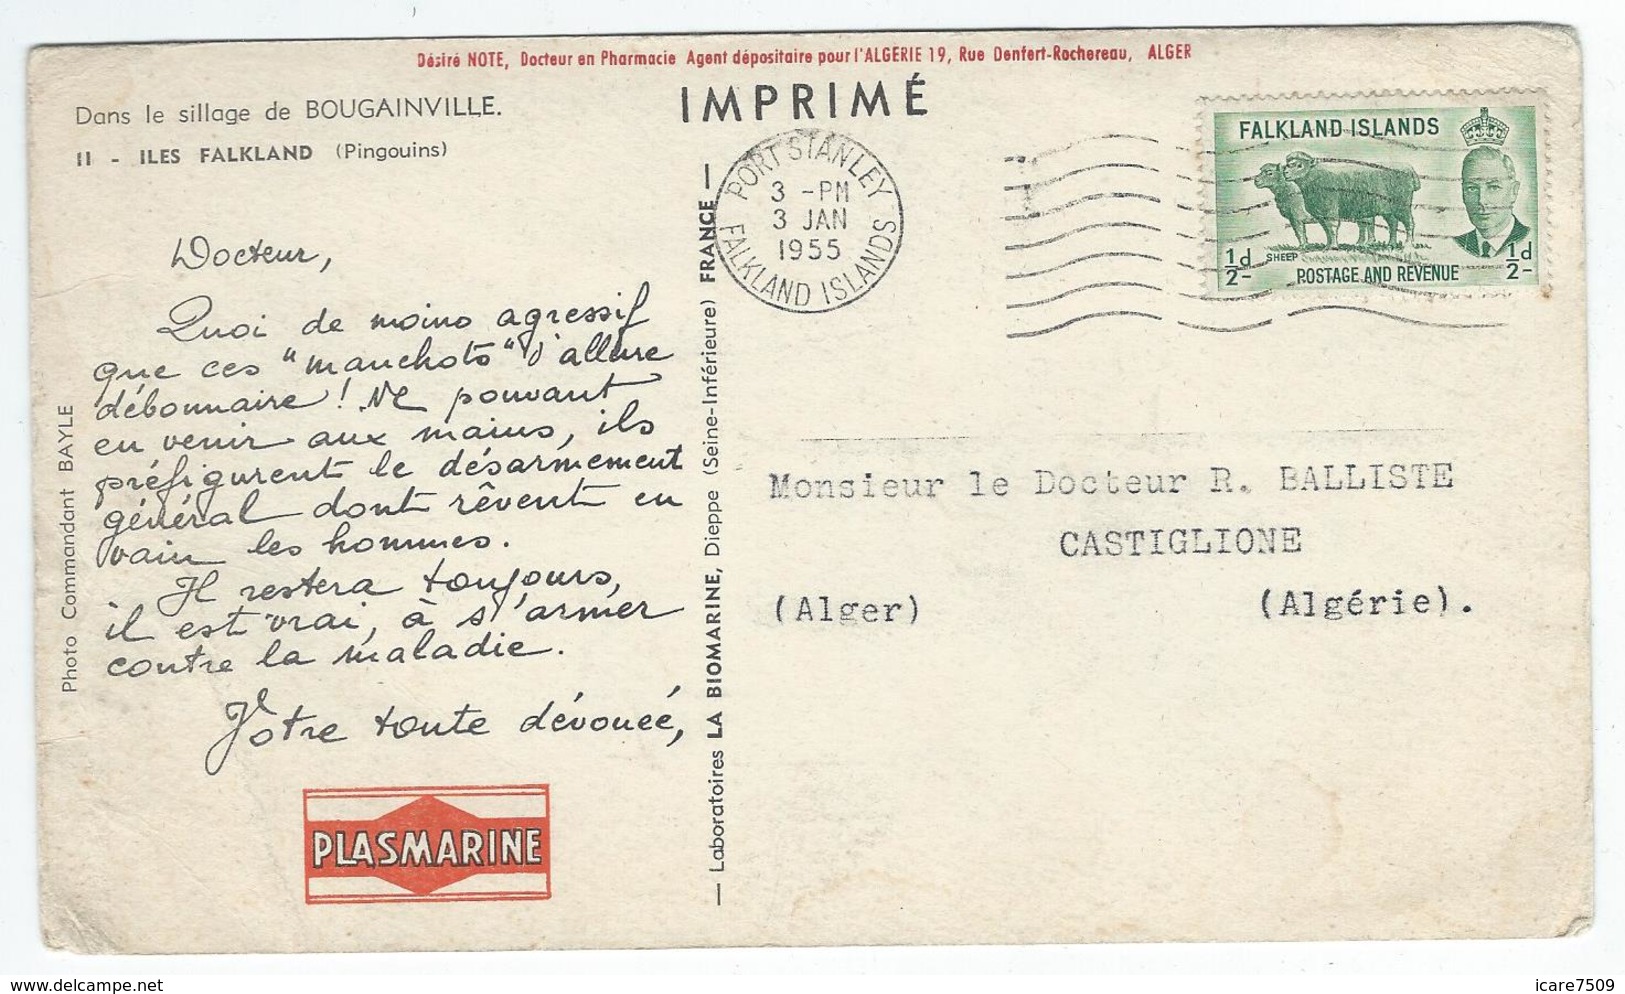 Désiré NOTE, Docteur en Pharmacie Agent dépositaire pour l'ALGERIE 19, Rue Denfert-Rochereau, ALGER
IMPRIMÉ
Dans le sillage de BOUGAINVILLE.
II - ILES FALKLAND (Pingouins)
Docteur,
Quoi de moins agressif
que ces "manchots" d'allure
débonnaire ! Ne pouvant
en venir aux mains, ils
préfigurent le désarmement
général dont rêvent en
vain les hommes.
Il restera toujours,
il est vrai, à s'armer
contre la maladie.
Votre toute dévouée,
PLASMARINE
Photo Commandant BAYLE
— Laboratoires LA BIOMARINE, Dieppe (Seine-Inférieure) FRANCE —
PORT STANLEY
3 - PM
3 JAN
1955
FALKLAND ISLANDS
FALKLAND ISLANDS
½d
SHEEP
POSTAGE AND REVENUE
½d
Monsieur le Docteur R. BALLISTE
CASTIGLIONE
(Alger) (Algérie).
icare7509
delcampe.net